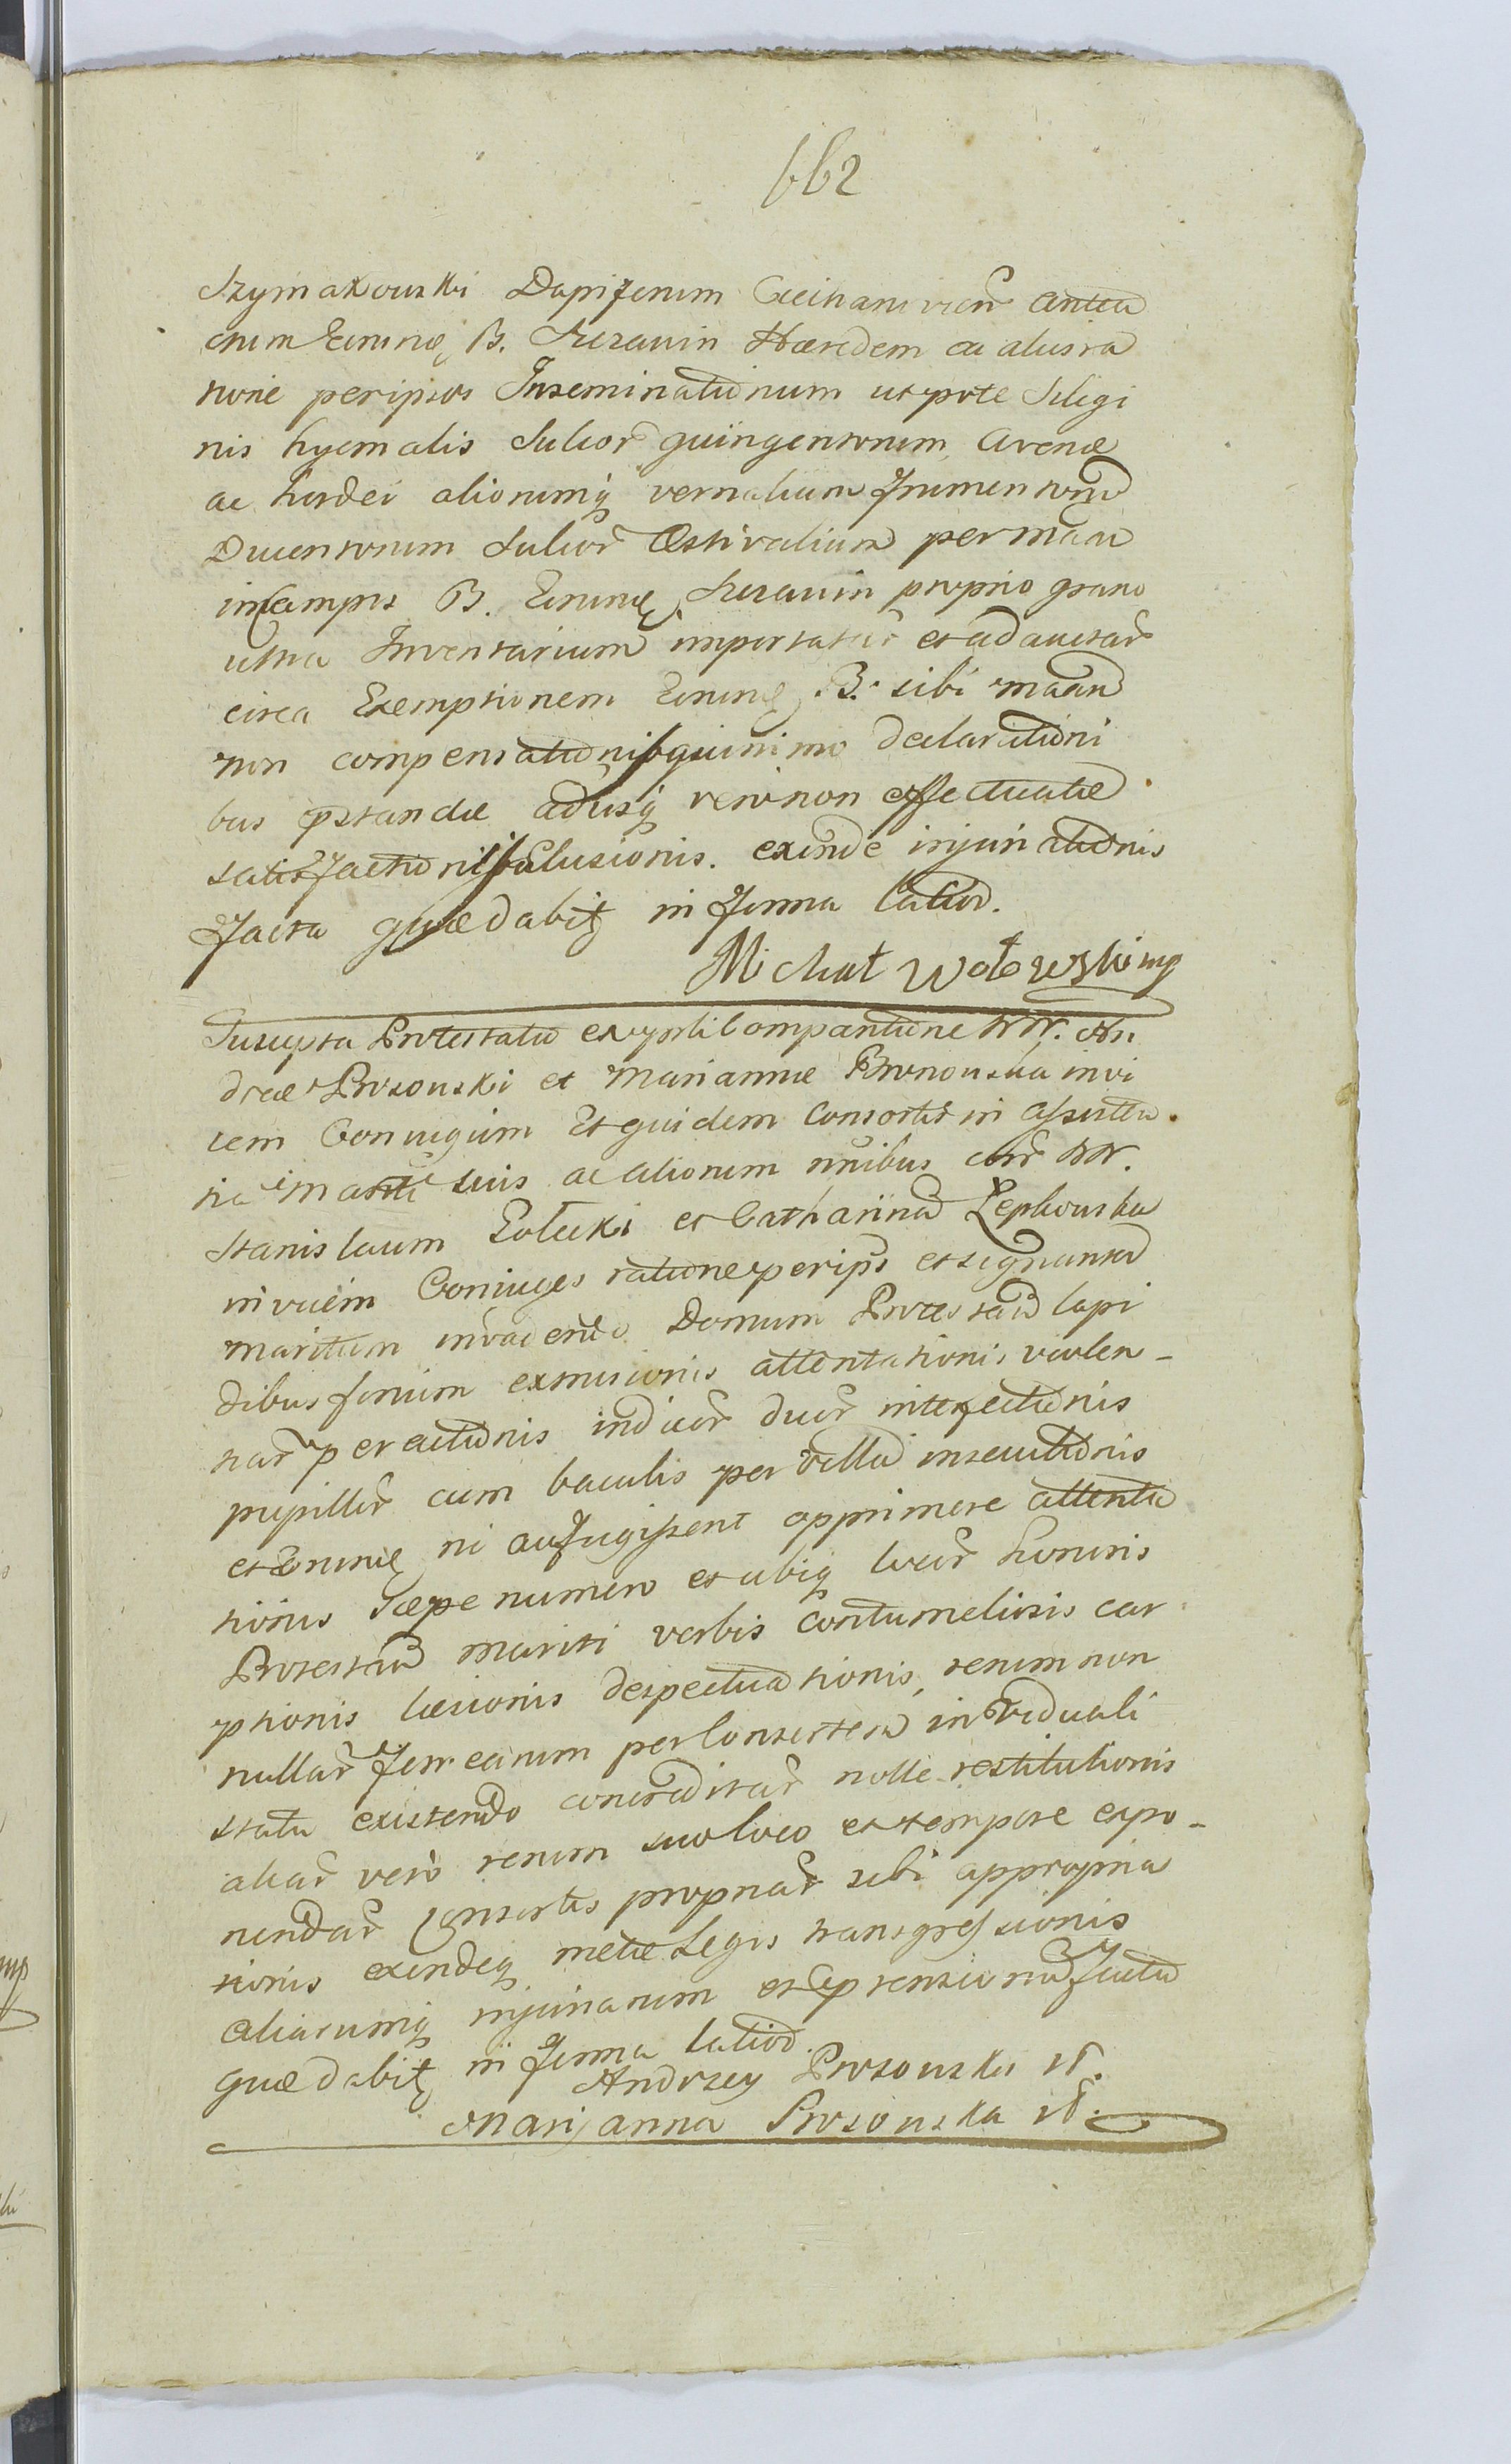 662
Szymakowski Dapiferum Ciechanovien̄ antea
crum Eorundę B. Szczawin Hæredem ea
none per ipsos Inseminationum utpote Siligi
nis hyemalis Sulcor̄ quingentorum, Avenæ
ac hordei aliorumq̨ vernalium frumentorū
Ducentorum Sulcor̄ Æstivalium per
in Campis B. Szczawin proprio grano
ultra Inventarium importatar̄ et adauctar̄
circa Exemptionem B. sibi
non compensationis quinimo declarationi
bus p̄standæ adusq̨ vero non effectuatæ
satisfactionis Elusionis. exinde injuriationis
facta quæ dabitꝫ in forma latior̄.
Michał mp
Suscepta Protestatio ex p̄nti Compantione WW. An
dreæ Prosowski et Mariannæ Bronowska invi
cem Coniugum Et quidem Consortis in assisten
tia mariti suis ac aliorum nn̄ibus cōtr̄ WW.
Stanislaum et Catharinā Lepkowska
invicem Coniuges ratione per ipsos et signanter
maritum invadendo Domum Protestan̄ lapi
dibus forium excussionis attentationis violen-
tar̄ peractionis indicor̄ duor̄ interfectionis
pupillor̄ cum baculis per villā insecutionis
et ni aufugissent opprimere attenta
tionis Sæpe numero et ubiq̨ locor̄ honoris
Protestan̄ mariti verbis contumeliosis car
ptionis læsionis despectuationis, rerum non
nullar̄ ferrearum per Consortem in viduali
statu existendo concreditar̄ nolle restitutionis
aliar̄ vero rerum suo loco et tempore expo-
nendar̄ Consortis propriar̄ sibi appropria
tionis exindeq̨ metæ Legis transgressionis
Aliarumq̨ injuriarum et p̄tensionū facta
quæ dabitꝫ in forma latior̄.
Andrzey Prosowski
Maryanna Prosowska